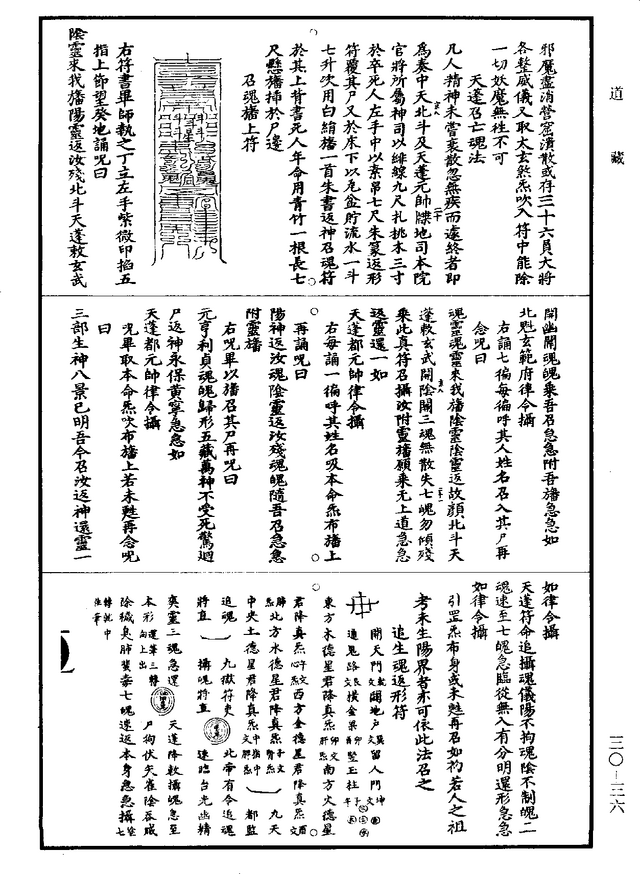 道藏
邪魔盡消營窟潰散或存三十六員大將
各整威儀又取太玄煞炁吹入符中能除
一切妖魔無往不可
天蓬召亡魂法
凡人精神未嘗衰散忽無疾而遽終者即
為奏中天北斗及天蓬元帥牒地司本院
官將所屬神司以緋線九尺扎桃木三寸
於卒死人左手中以素帛七尺朱篆返形
符覆其尸又於床下以瓦盆貯流水一斗
七升次用白絹旛一首朱書返神召魂符
於其上背書死人年命用青竹一根長七
尺懸旛插於尸邊
召魂旛上符
右符書畢師執之丁立左手紫微印掐五
指上節望癸地誦呪曰
陰靈來我旛陽靈返汝殘北斗天蓬敕玄武
開幽關魂魄乘吾召急急附吾旛急急如
北魁玄範府律令攝
右誦七徧每徧呼其人姓名召入其尸再
念呪曰
魂靈魂靈來我旛陰靈陰靈返故顏北斗天
蓬敕玄武開陰關三魂無散失七魄勿傾殘
乘此真符召攝汝附靈旛願乘无上道急急
返靈還一如
天蓬都元帥律令攝
右每誦一徧呼其姓名吸本命炁布旛上
再誦呪曰
陽神返汝魂陰靈返汝殘魂魄隨吾召急急
附靈旛
右呪畢以旛召其尸再呪曰
元亨利貞魂魄歸形五藏萬神不受死驚迴
尸返神永保黃寧急急如
天蓬都元帥律令攝
呪畢取本命炁吹布旛上若未甦再念呪
曰
三部生神八景已明吾今召汝返神還靈一
如律令攝
天蓬符命追攝魂儀陽不拘魂陰不制魄二
魂速至七魄急臨從無入有分明還形急急
如律令攝
引罡炁布身或未甦再召如初若人之祖
考未生陽界者亦可依此法召之
追生魂返形符
開天門 闢地戶 留人門
通鬼路 橫金梁 竪玉柱
東方木德星君降真炁 南方火德星
君降真炁 西方金德星君降真炁
北方水德星君降真炁 九天
中央土德星君降真炁 都監
追魂 九獄符吏 北帝有令追魂
將直 攝魂將直 速臨台光幽精
爽靈三魂急還 天蓬降敕攝魄急至
本形 尸狗伏矢雀陰吞賊
除穢臭肺蜚毒七魄速返本身急急攝
三〇—三六